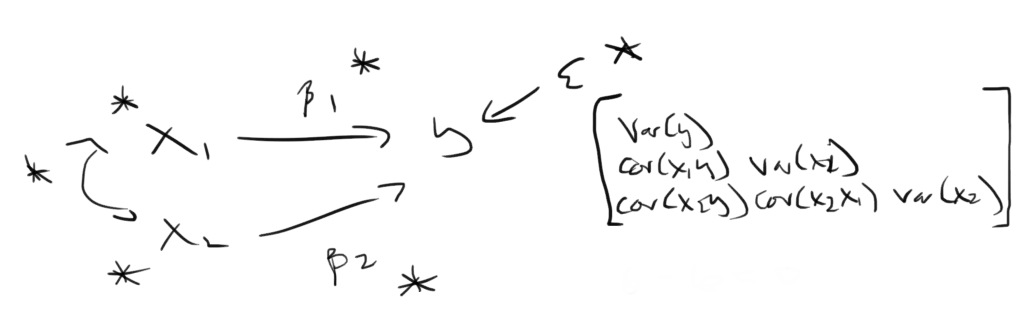 * ε *
β1
* X1 y
*
X2
* β2 *
var(y)
cov(x1y) var(x1)
cov(x2y) cov(x2x1) var(x2)